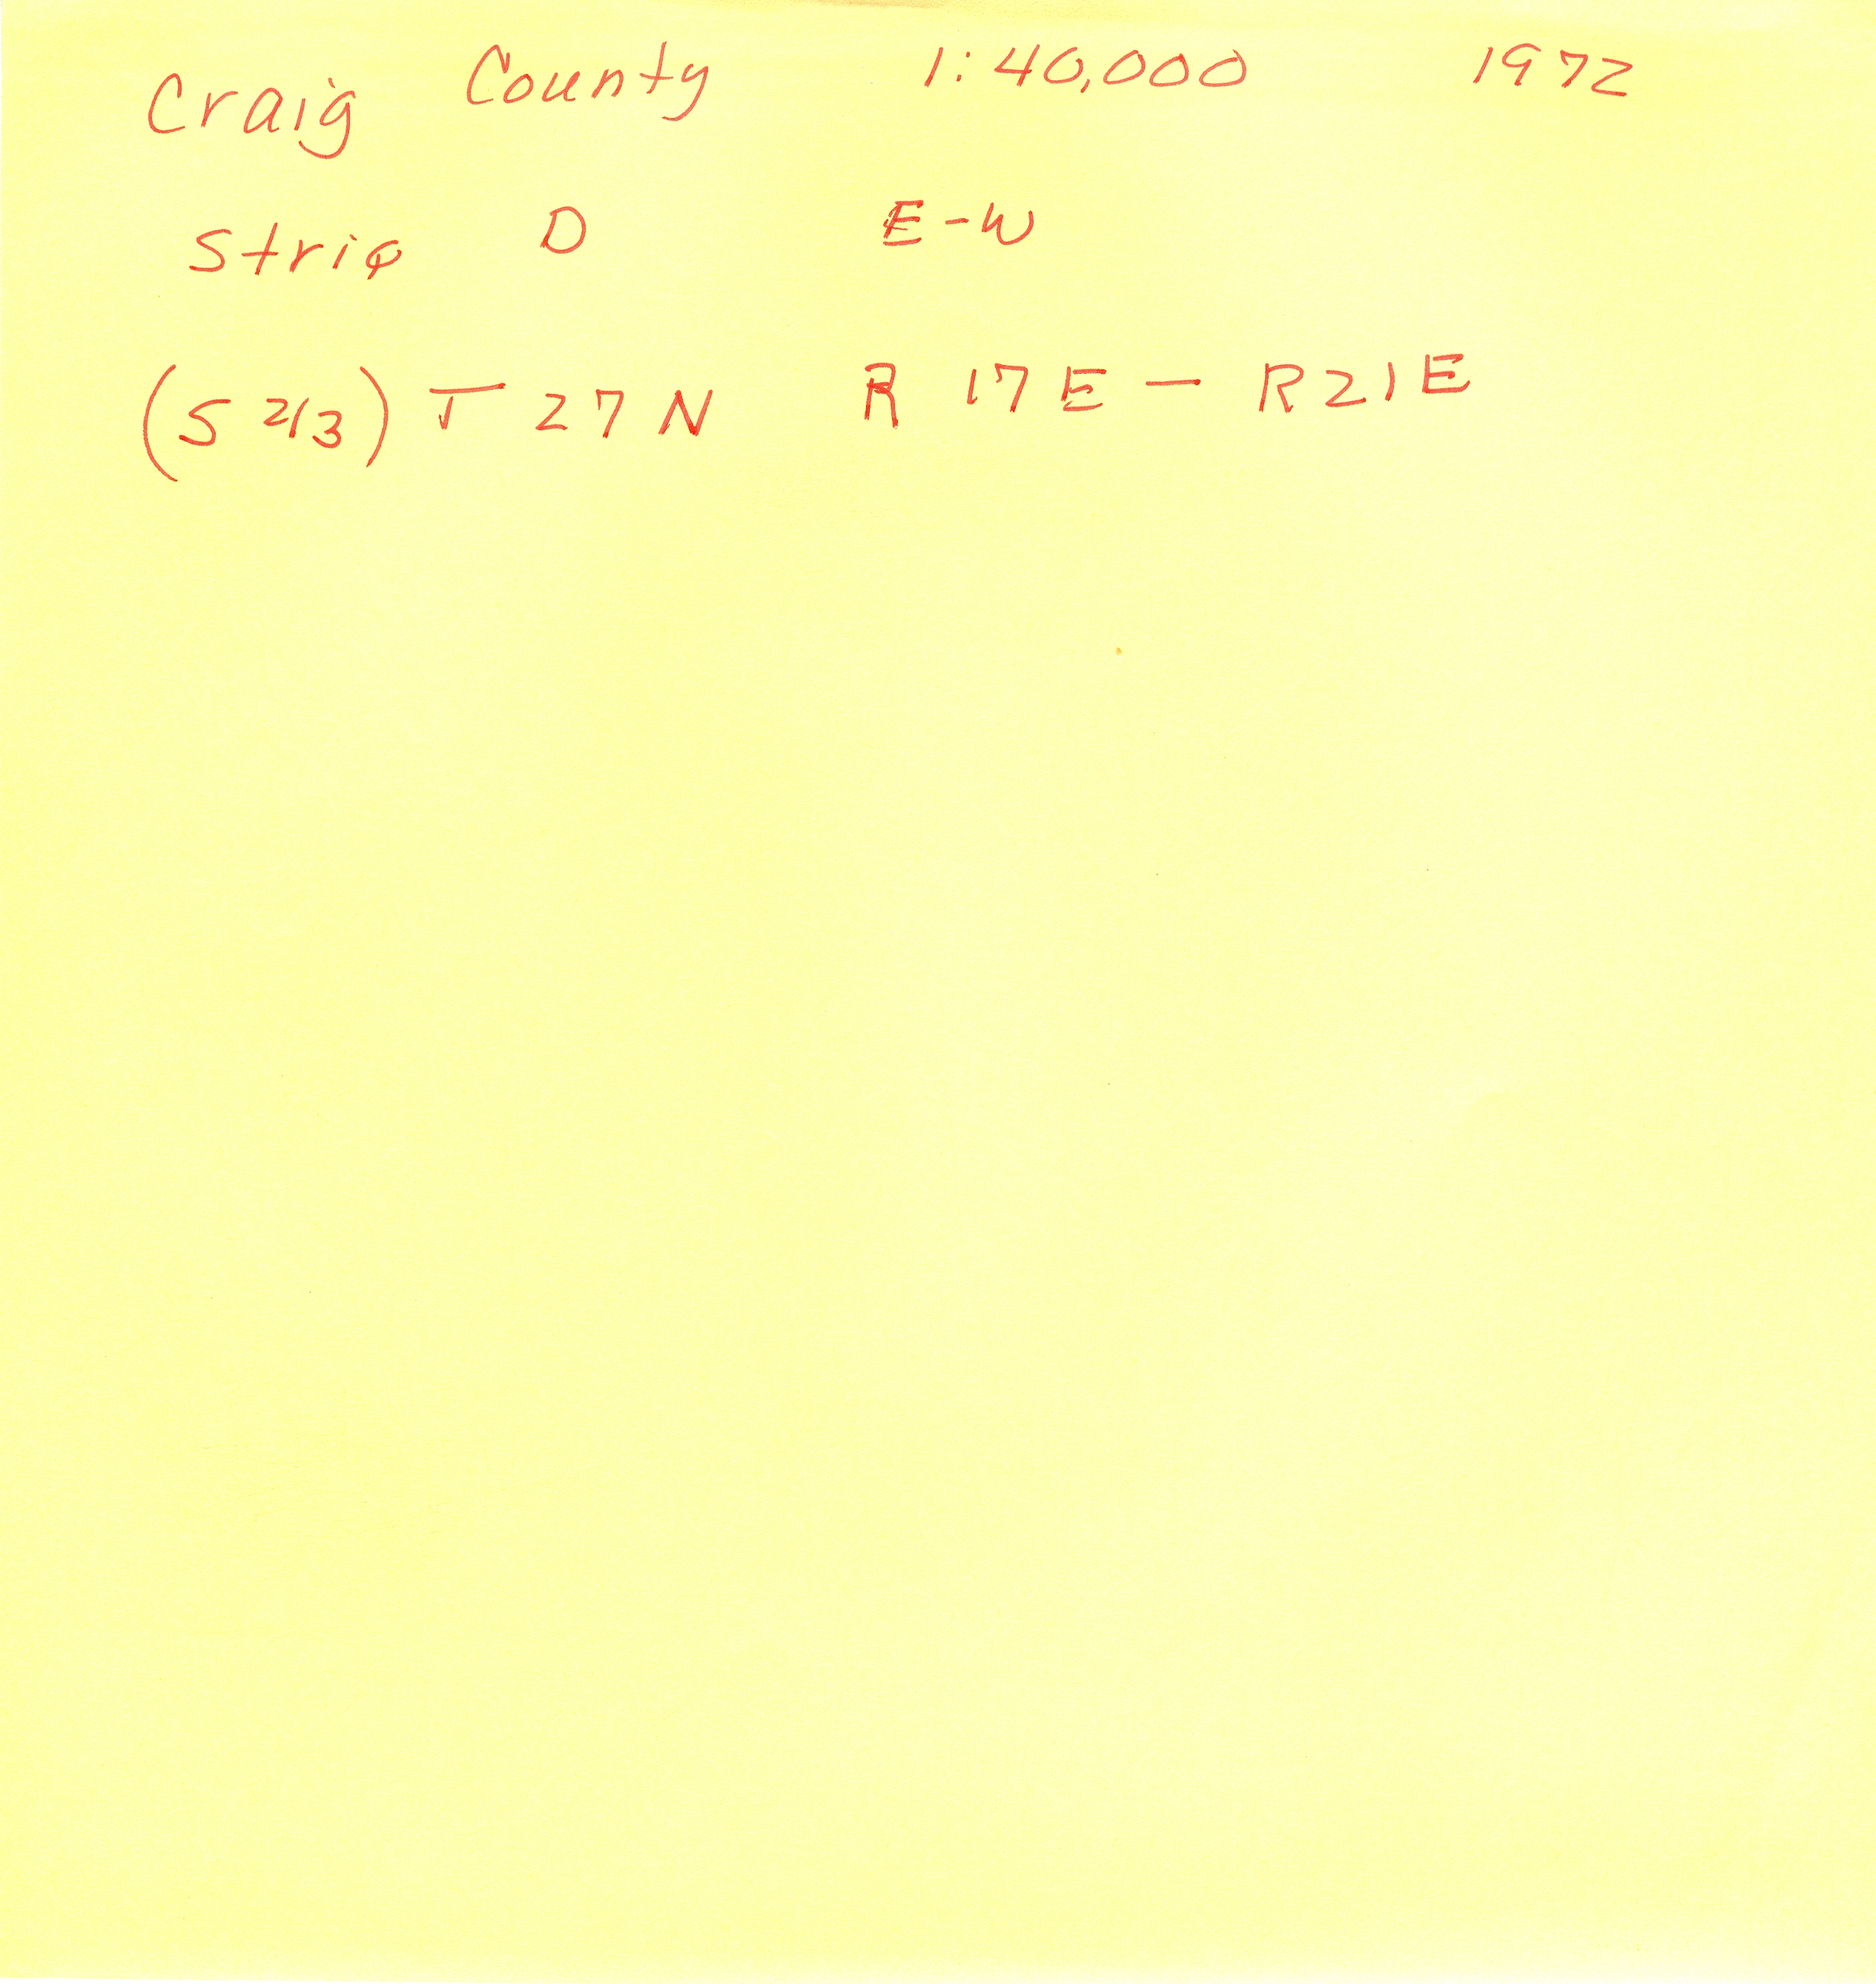 Craig County 1:40,000 1972
Strip D E-W
(S 2/3) T 27 N R 17 E — R21E